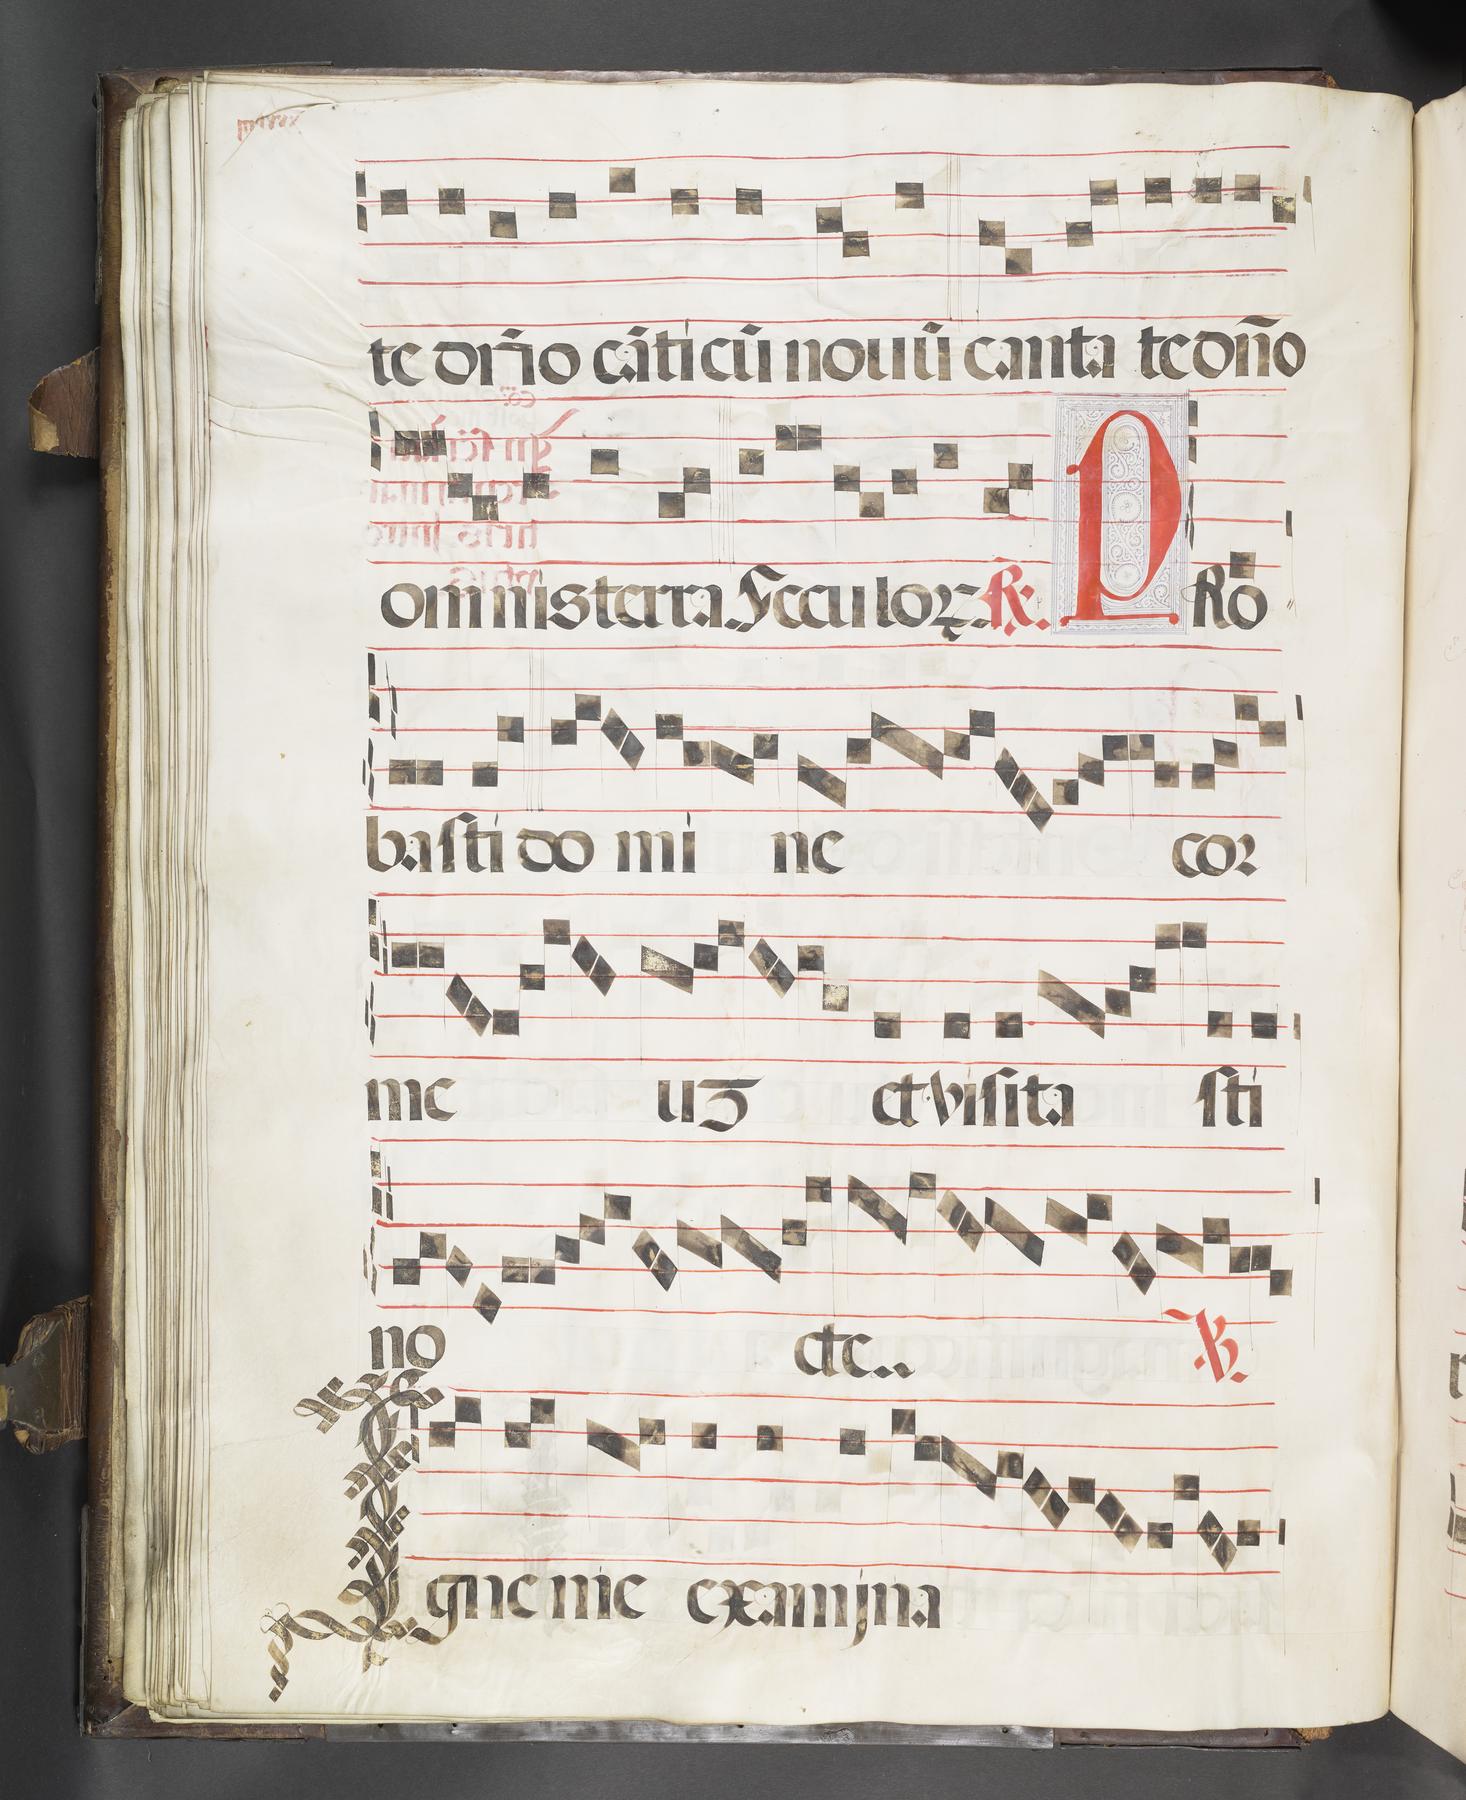 te dñio cãticũ nouũ canta te dño
omnis terra. Seculoꝝ. ℟. PRo
basti do mi ne cor
me uʒ et visita sti
no cte.. ℣.
Igne me examina